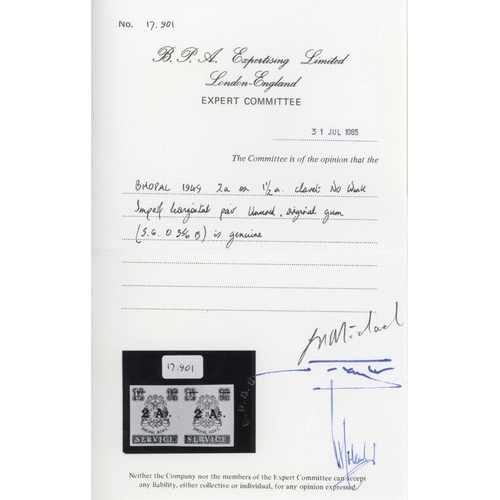 No. 17.901
B. P. A. Expertising Limited
London-England
EXPERT COMMITTEE
31 JUL 1985
The Committee is of the opinion that the
BHOPAL 1949 2a on 1½a. claret No Wmk
Imperf horizontal pair Unused, original gum
(S.G. O 346 B) is genuine
17.901
2 As. 2 As.
BHOPAL GOVT. BHOPAL GOVT.
SERVICE SERVICE
B.P.A.
Neither the Company nor the members of the Expert Committee can accept
any liability, either collective or individual, for any opinion expressed